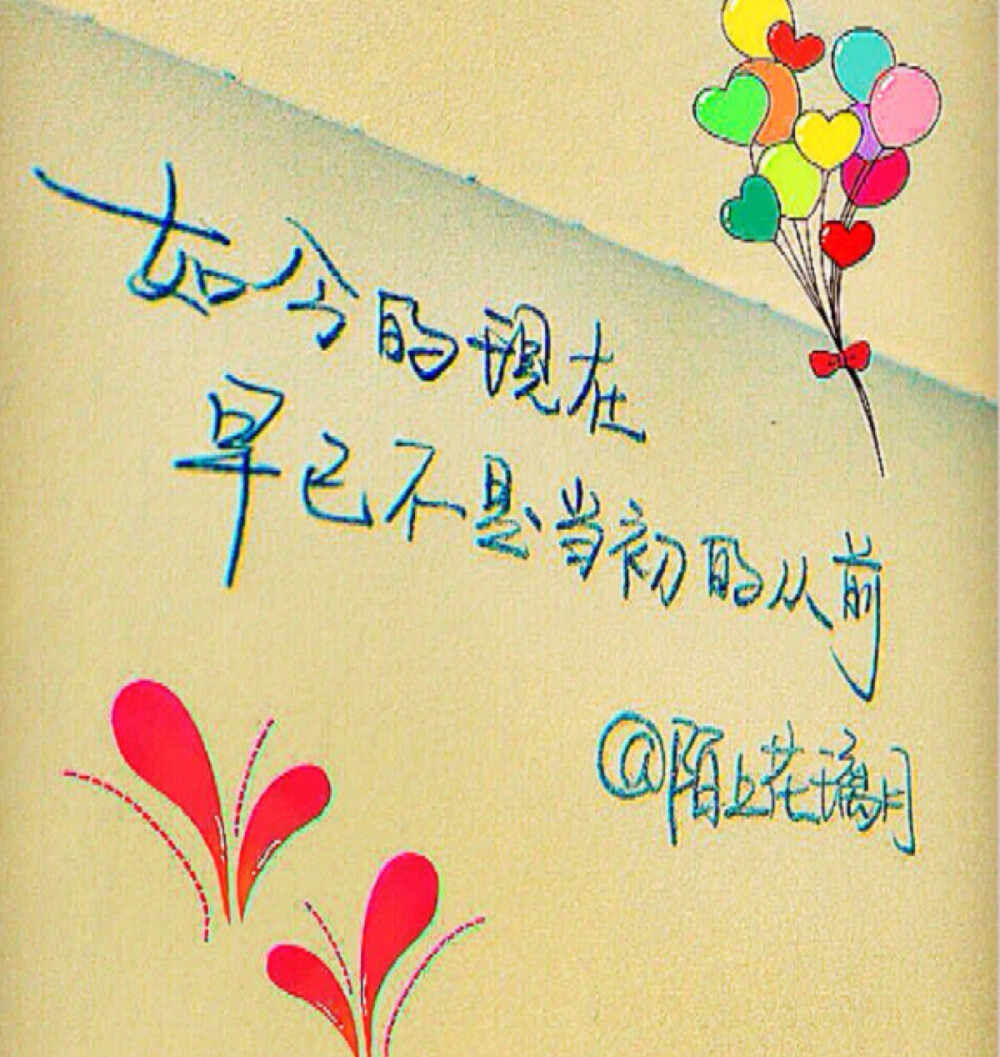 如今的现在
早已不是当初的从前
@陌上花璃月